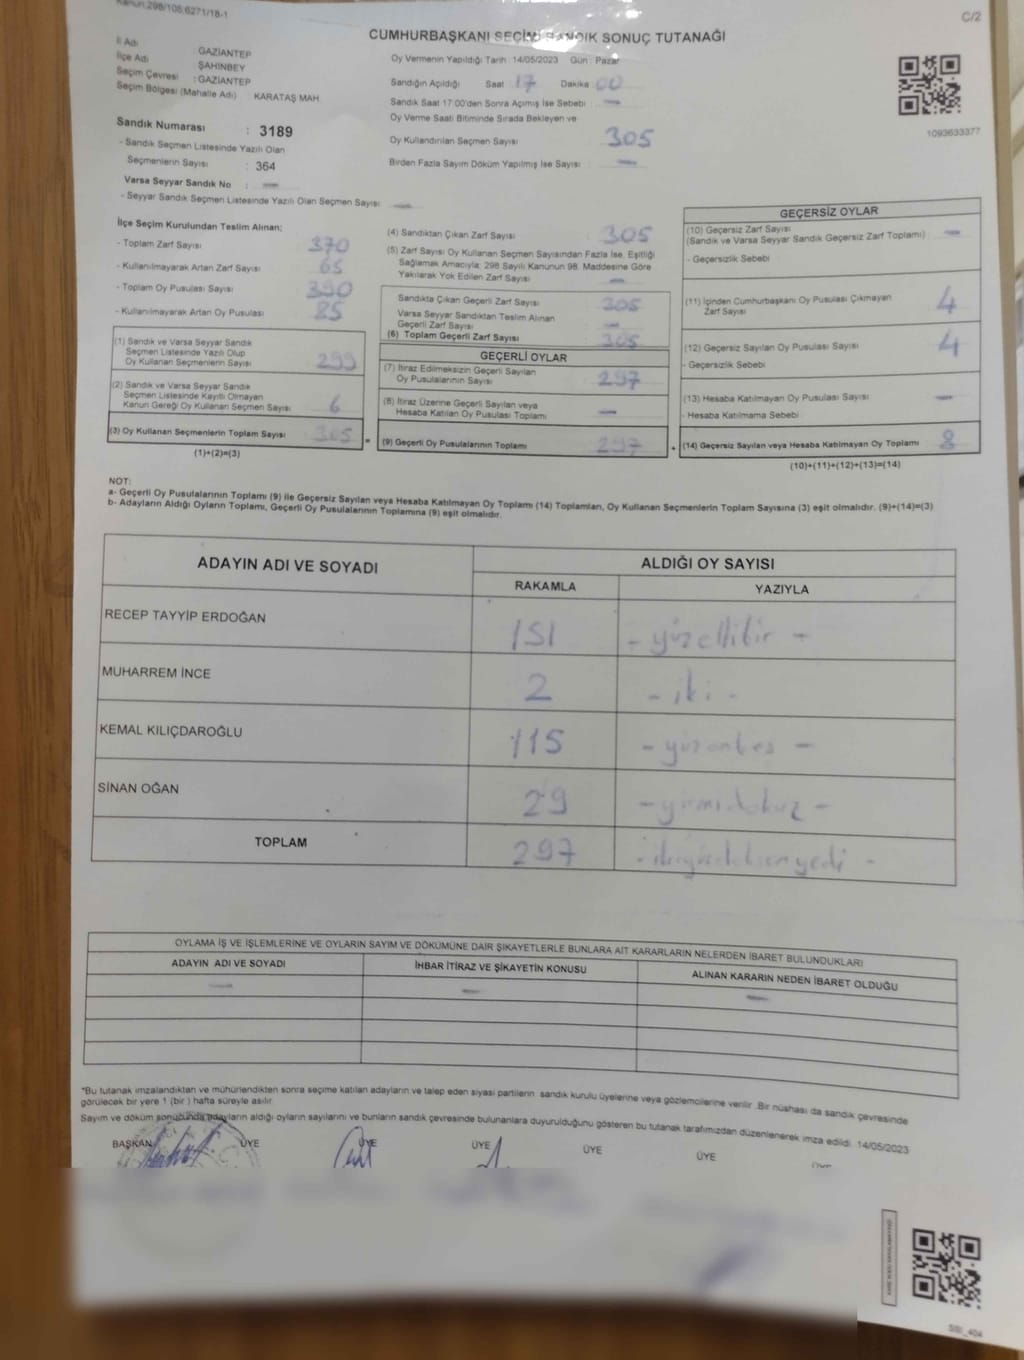 Kanun:298/105;6271/18-1
C/2
CUMHURBAŞKANI SEÇİMİ SANDIK SONUÇ TUTANAĞI
İl Adı : GAZİANTEP
İlçe Adı : ŞAHİNBEY
Seçim Çevresi : GAZİANTEP
Seçim Bölgesi (Mahalle Adı) : KARATAŞ MAH
Sandık Numarası : 3189
- Sandık Seçmen Listesinde Yazılı Olan
Seçmenlerin Sayısı : 364
Varsa Seyyar Sandık No : —
- Seyyar Sandık Seçmen Listesinde Yazılı Olan Seçmen Sayısı : —
Oy Vermenin Yapıldığı Tarih : 14/05/2023 Gün : Pazar
Sandığın Açıldığı Saat 17 Dakika 00
Sandık Saat 17:00'den Sonra Açımış İse Sebebi : —
Oy Verme Saati Bitiminde Sırada Bekleyen ve
Oy Kullandırılan Seçmen Sayısı : 305
Birden Fazla Sayım Döküm Yapılmış İse Sayısı : —
1093633377
İlçe Seçim Kurulundan Teslim Alınan;
- Toplam Zarf Sayısı : 370
- Kullanılmayarak Artan Zarf Sayısı : 65
- Toplam Oy Pusulası Sayısı : 390
- Kullanılmayarak Artan Oy Pusulası : 85
(1) Sandık ve Varsa Seyyar Sandık
Seçmen Listesinde Yazılı Olup
Oy Kullanan Seçmenlerin Sayısı : 299
(2) Sandık ve Varsa Seyyar Sandık
Seçmen Listesinde Kayıtlı Olmayan
Kanun Gereği Oy Kullanan Seçmen Sayısı : 6
(3) Oy Kullanan Seçmenlerin Toplam Sayısı : 305
(1)+(2)=(3)
(4) Sandıktan Çıkan Zarf Sayısı : 305
(5) Zarf Sayısı Oy Kullanan Seçmen Sayısından Fazla İse, Eşitliği
Sağlamak Amacıyla; 298 Sayılı Kanunun 98. Maddesine Göre
Yakılarak Yok Edilen Zarf Sayısı : —
Sandıkta Çıkan Geçerli Zarf Sayısı : 305
Varsa Seyyar Sandıktan Teslim Alınan
Geçerli Zarf Sayısı : —
(6) Toplam Geçerli Zarf Sayısı : 305
GEÇERLİ OYLAR
(7) İtiraz Edilmeksizin Geçerli Sayılan
Oy Pusulalarının Sayısı : 297
(8) İtiraz Üzerine Geçerli Sayılan veya
Hesaba Katılan Oy Pusulası Toplamı : —
= (9) Geçerli Oy Pusulalarının Toplamı : 297
GEÇERSİZ OYLAR
(10) Geçersiz Zarf Sayısı
(Sandık ve Varsa Seyyar Sandık Geçersiz Zarf Toplamı) : —
- Geçersizlik Sebebi :
(11) İçinden Cumhurbaşkanı Oy Pusulası Çıkmayan
Zarf Sayısı : 4
(12) Geçersiz Sayılan Oy Pusulası Sayısı : 4
- Geçersizlik Sebebi :
(13) Hesaba Katılmayan Oy Pusulası Sayısı : —
- Hesaba Katılmama Sebebi :
+ (14) Geçersiz Sayılan veya Hesaba Katılmayan Oy Toplamı : 8
(10)+(11)+(12)+(13)=(14)
NOT:
a- Geçerli Oy Pusulalarının Toplamı (9) ile Geçersiz Sayılan veya Hesaba Katılmayan Oy Toplamı (14) Toplamları, Oy Kullanan Seçmenlerin Toplam Sayısına (3) eşit olmalıdır. (9)+(14)=(3)
b- Adayların Aldığı Oyların Toplamı, Geçerli Oy Pusulalarının Toplamına (9) eşit olmalıdır.
ADAYIN ADI VE SOYADI ALDIĞI OY SAYISI
RAKAMLA YAZIYLA
RECEP TAYYİP ERDOĞAN 151 - yüzellibir -
MUHARREM İNCE 2 - iki -
KEMAL KILIÇDAROĞLU 115 - yüzonbeş -
SİNAN OĞAN 29 - yirmidokuz -
TOPLAM 297 - ikiyüzdoksanyedi -
OYLAMA İŞ VE İŞLEMLERİNE VE OYLARIN SAYIM VE DÖKÜMÜNE DAİR ŞİKAYETLERLE BUNLARA AİT KARARLARIN NELERDEN İBARET BULUNDUKLARI
ADAYIN ADI VE SOYADI İHBAR İTİRAZ VE ŞİKAYETİN KONUSU ALINAN KARARIN NEDEN İBARET OLDUĞU
— — —
*Bu tutanak imzalandıktan ve mühürlendikten sonra seçime katılan adayların ve talep eden siyasi partilerin sandık kurulu üyelerine veya gözlemcilerine verilir. Bir nüshası da sandık çevresinde
görülecek bir yere 1 (bir ) hafta süreyle asılır.
Sayım ve döküm sonucunda adayların aldığı oyların sayılarını ve bunların sandık çevresinde bulunanlara duyurulduğunu gösteren bu tutanak tarafımızdan düzenlenerek imza edildi. 14/05/2023
BAŞKAN ÜYE ÜYE ÜYE ÜYE ÜYE
SSI_404